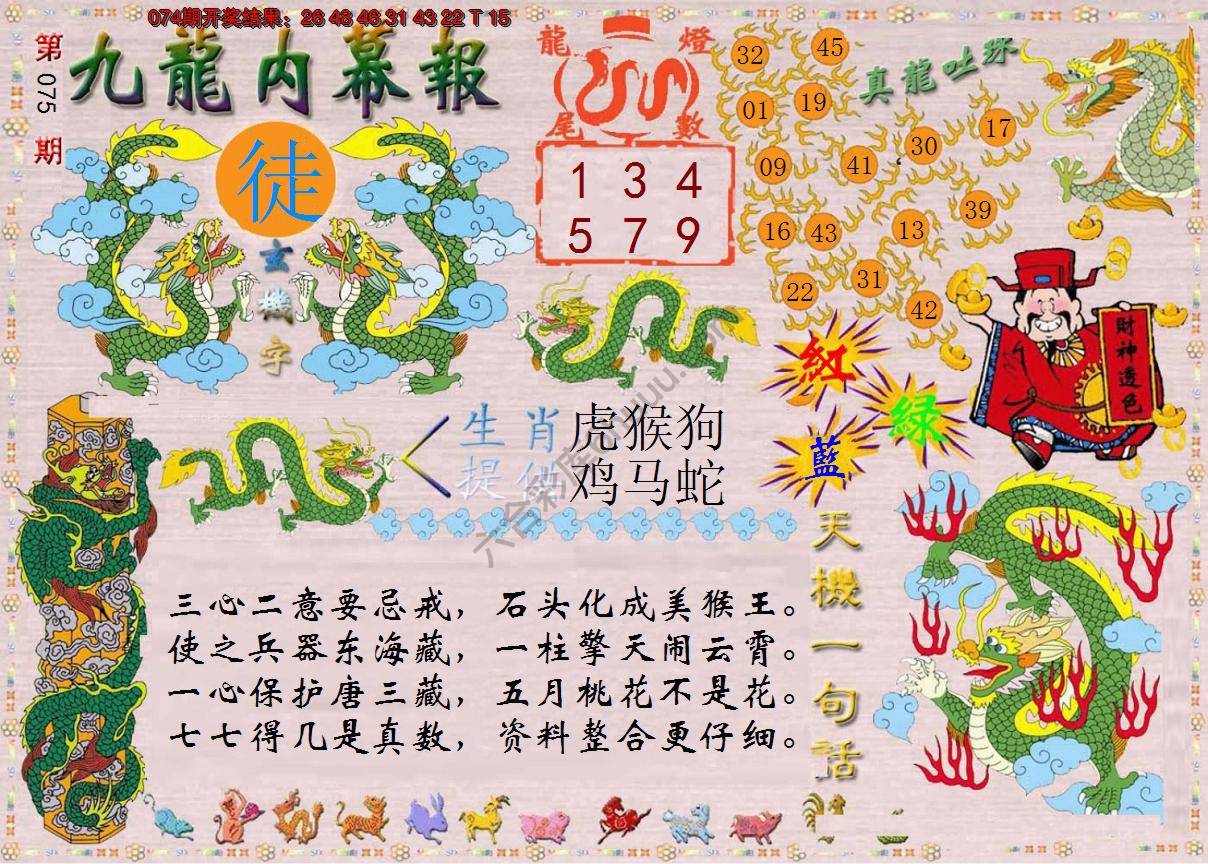 074期开奖结果：26 48 46 31 43 22 T 15
第075期
九龍内幕報
徒
玄機字
龍燈尾數
1 3 4
5 7 9
真龍吐珠
32 45
01 19
09 41 30 17
16 43 13 39
22 31 42
財神透色
紅
綠
藍
生肖 虎猴狗
提供 鸡马蛇
天機一句話
三心二意要忌戒，石头化成美猴王。
使之兵器东海藏，一柱擎天闹云霄。
一心保护唐三藏，五月桃花不是花。
七七得几是真数，资料整合更仔细。